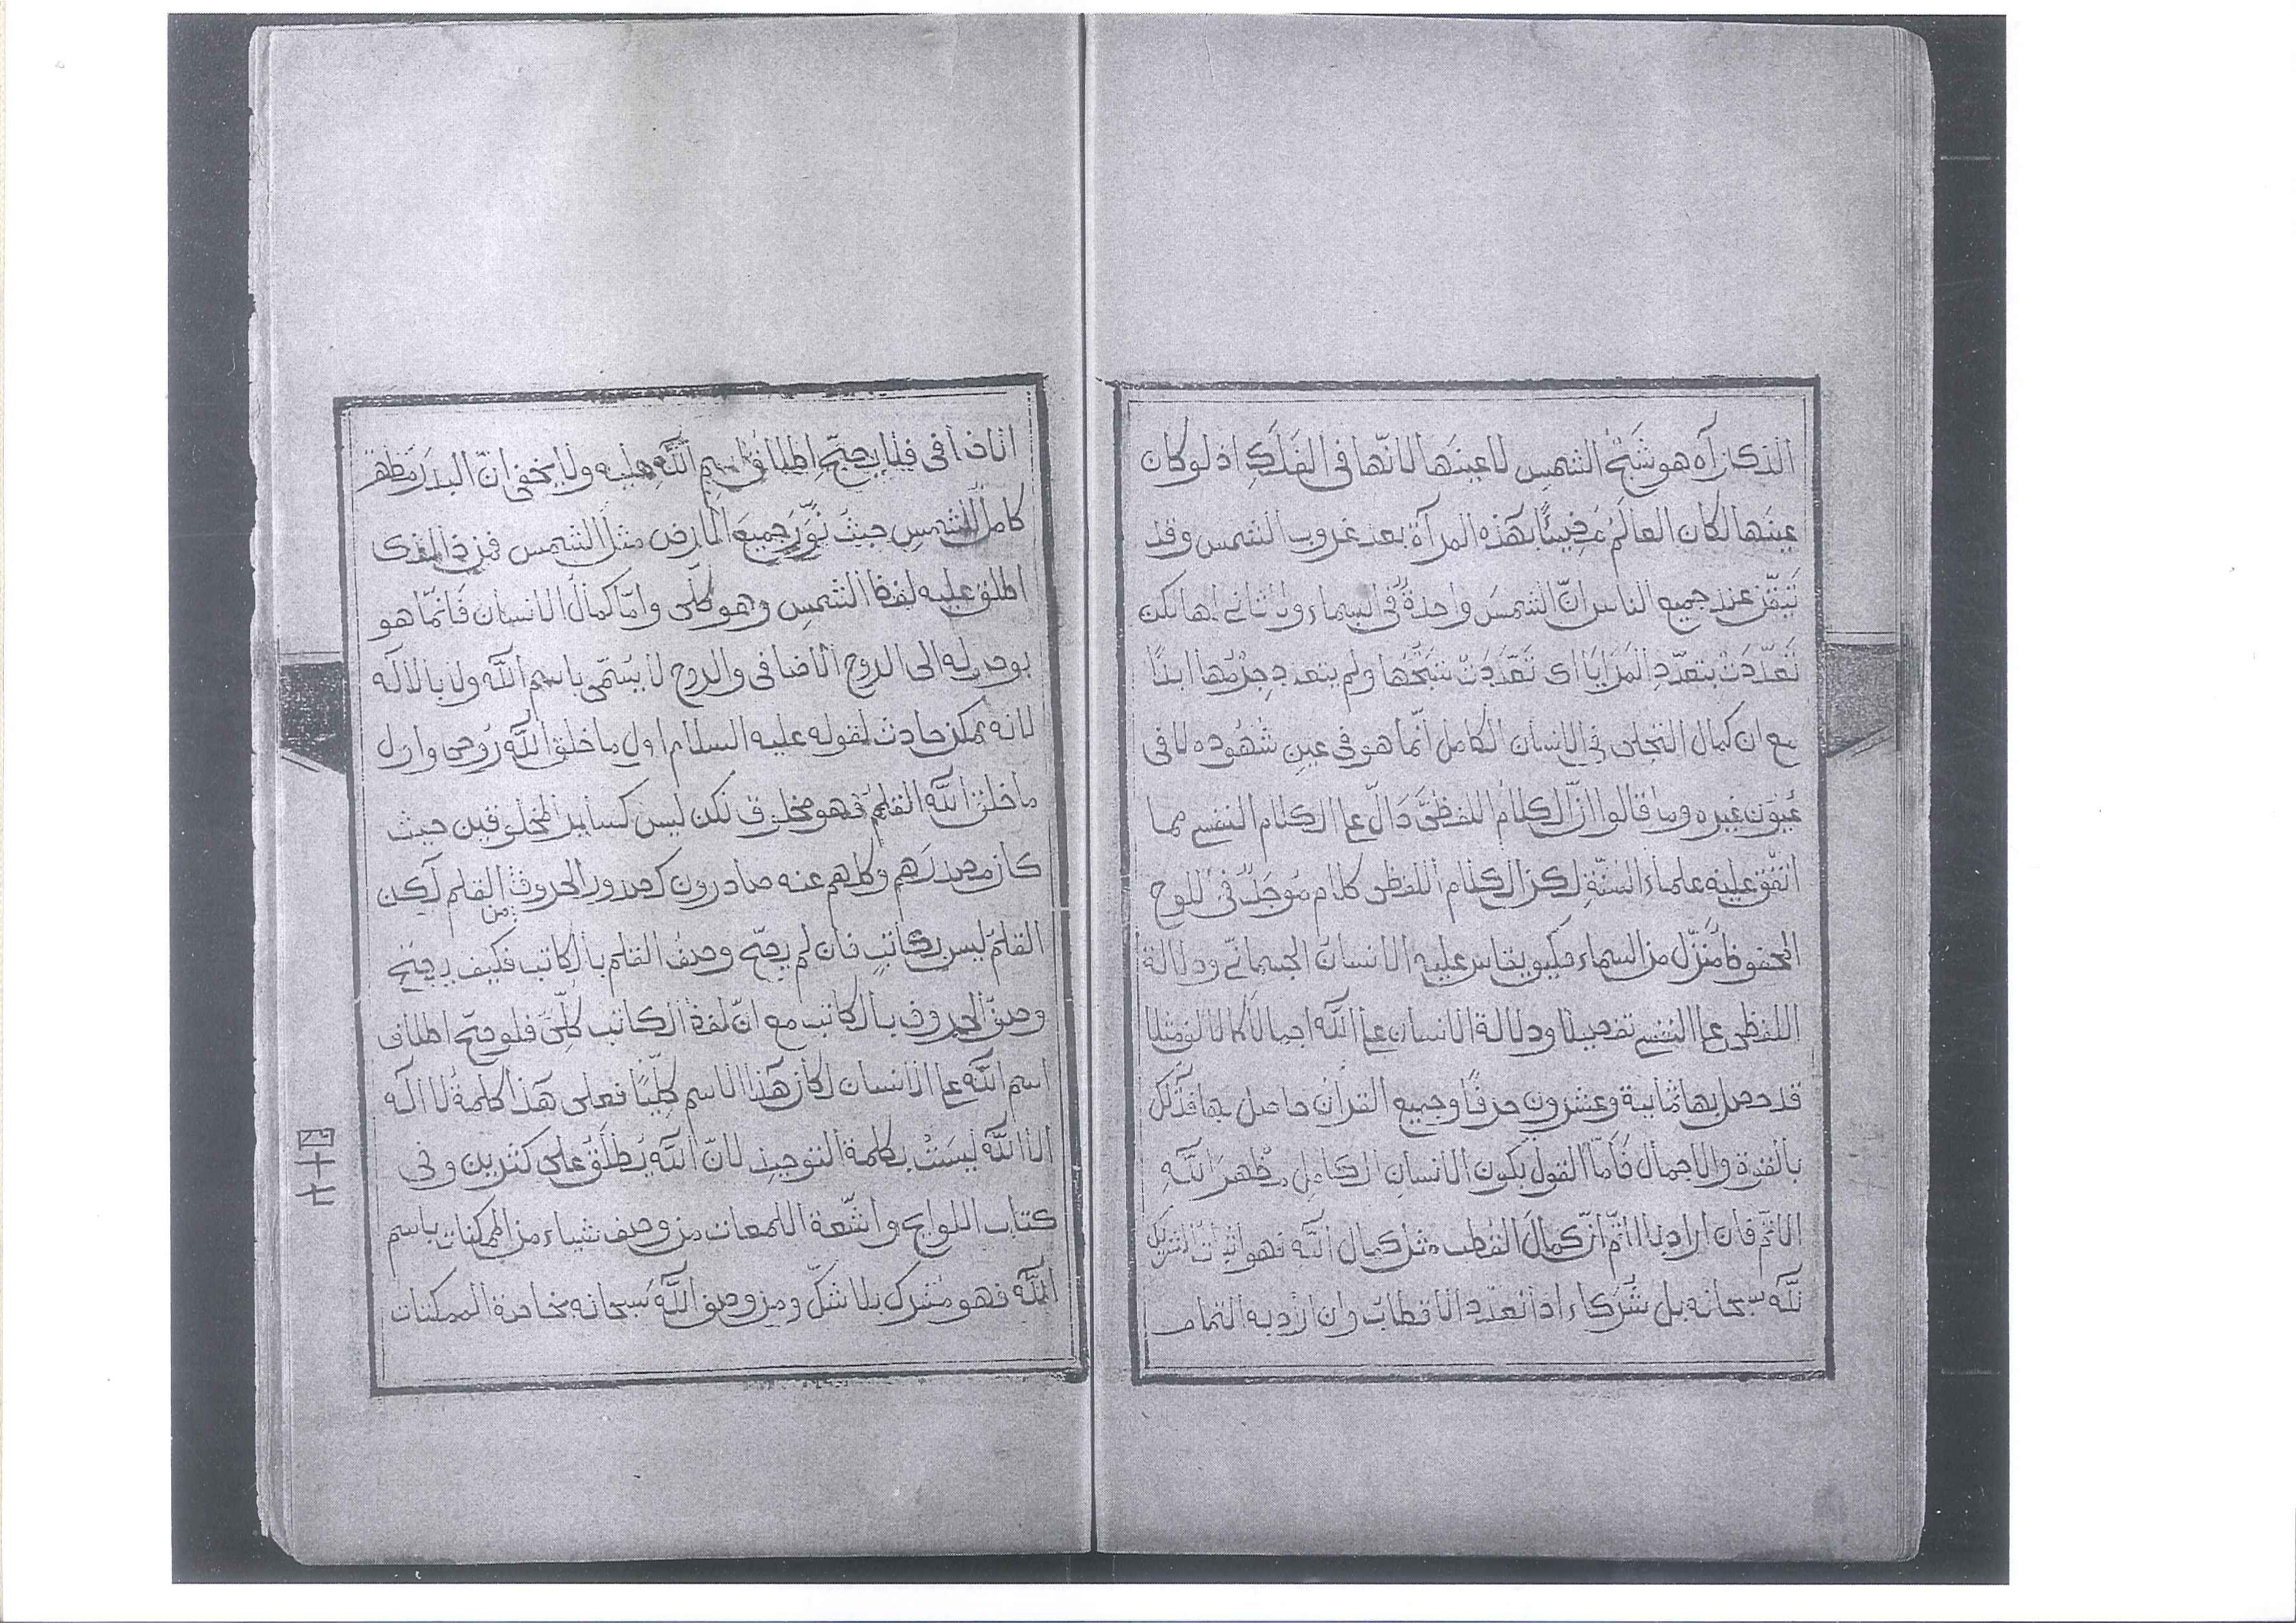 الذى رآه هو شَبَحُ الشمس لا عينها لانّها فى الفَلَكِ اذ لو كان
عينها لكان العالَمُ مُضِيئًا بهذه المرآة بعد غروب الشمس وقد
تيقّن عند جميع الناس انّ الشمسَ واحدةٌ فى السماء ولا ثانى لها لكن
تَعَدَّدَتْ بتعدّدِ المَرَايَا اى تَعَدَّدَتْ شبحُها ولم يتعدد جِرْمُها ابدًا
مع ان كمال التجلى فى الانسان الكامل انّما هو فى عين شُهُوده لا فى
عُيُون غيره وما قالوا انّ الكلامَ اللفظىَّ دَالٌّ على الكلام النفسى مما
اتفق عليه علماء السُنّةِ لكن الكلام اللفظى كلام مُوجَدٌ فى اللوح
المحفوظ مُنَزّل من السماء فكيف يقاس عليه الانسان الجسمانى ودلالة
اللفظى على النفسى تفصيلا ودلالة الانسان على الله اجمالا كالالف مثلا
قد حصل بها ثمانية وعشرون حرفًا وجميع القران حاصل بها
بالقوة والاجمال فَاَمّا القول بكون الانسان الكامل مظهرَ اللّٰهِ
الاتمّ فان اراد بالاتمّ انّ كمالَ القطب مثل كمال الله فهو اثبات شريك
للّٰه سبحانه بل شُرَكاء اذا تعدّد الاقطاب وان اراد به التمام
الاضافى فلا يصحّ اطلاق اسم اللّٰه عليه ولا يخفى انّ البدرَ مَظهر
كامل للشمس حيث نَوَّرَ جميعَ الارض مثل الشمس فمن ذا الذى
اطلق عليه لفظ الشمس وهو كلّى وامّا كمال الانسان فانّما هو
بوصوله الى الروح الاضافى والروح لا يُسَمّى باسم اللّٰه ولا بالاله
لانه ممكن حادث لقوله عليه السلام اول ما خلق اللّٰه رُوحى واول
ما خلق اللّٰه القلم فهو مخلوق لكن ليس كساير المخلوقين حيث
كان مصدرَهم وكلهم عنه صادرون كصدور الحروف من القلم لكن
القلمَ ليس بكاتبٍ فان لم يصحّ وصفُ القلم بالكاتب فكيف يصحّ
وصفُ الحروف بالكاتب مع انّ لفظ الكاتب كلّىّ فلو صحّ اطلاق
اسم اللّٰه على الانسان لكان هذا الاسم كلّيًّا فعلى هَذا كلمةُ لا اله
الا اللّٰه ليسَتْ بكلمة التوحيد لانّ اللّٰه يُطلَقُ على كثرين وفى
كتاب اللوايح واشعّة اللمعات من وصف شياء من الممكنات باسم
اللّٰه فهو مشرك بلا شكّ ومن وصف اللّٰهَ سبحانه بخاصة الممكنات
四十七